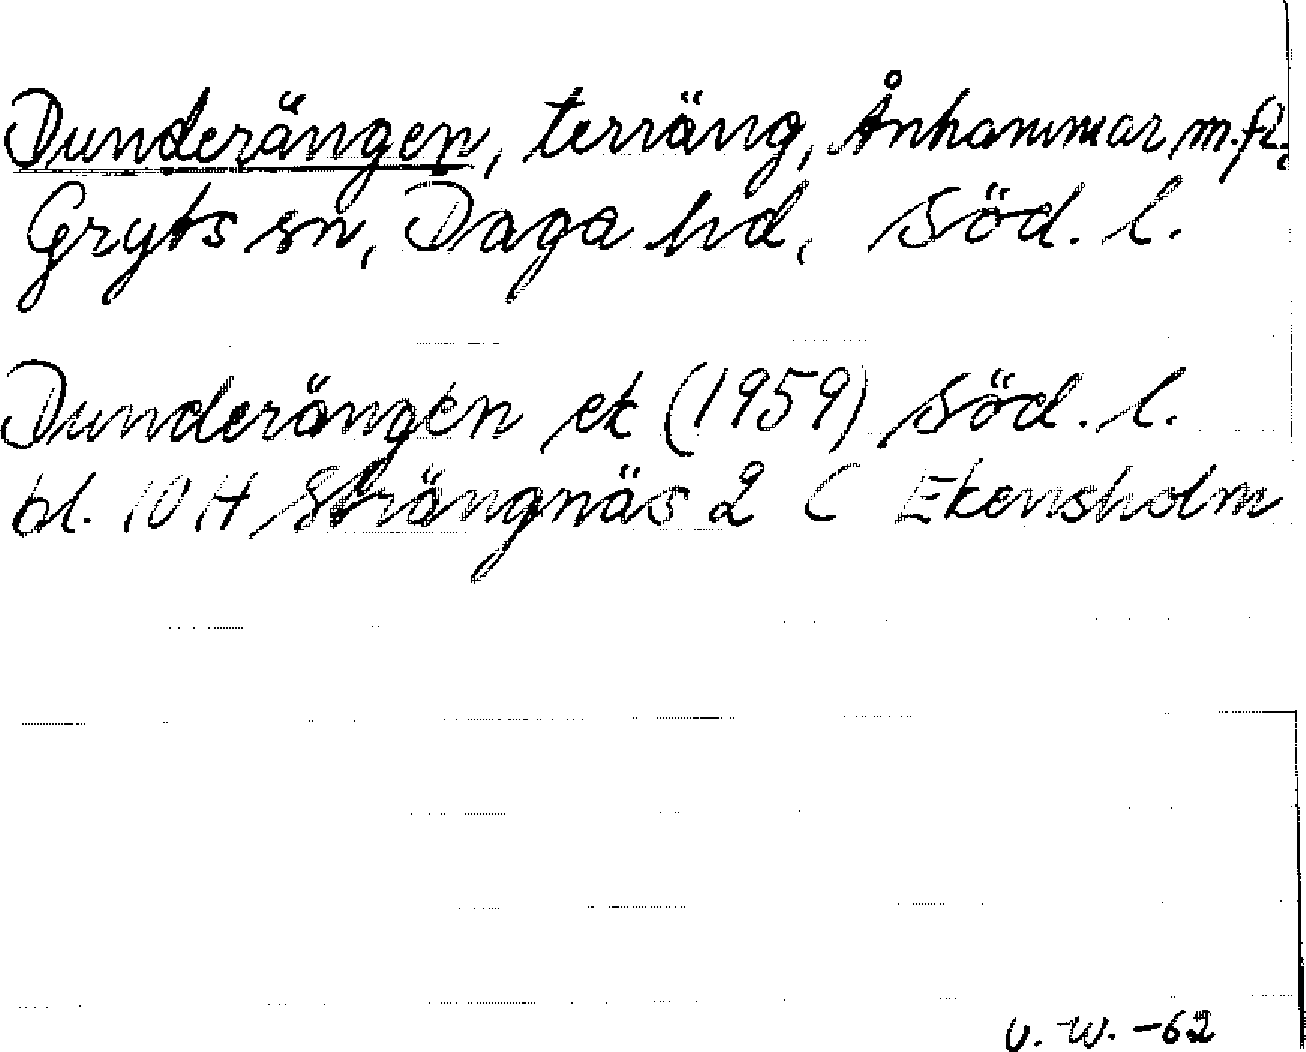 Dunderängen, terräng, Ånhammar m.fl.,
Gryts sn, Daga hd, Söd. l.
Dunderängen ek (1959) Söd. l.
bl. 10 H Strängnäs 2 C Ekensholm
U. W. -62